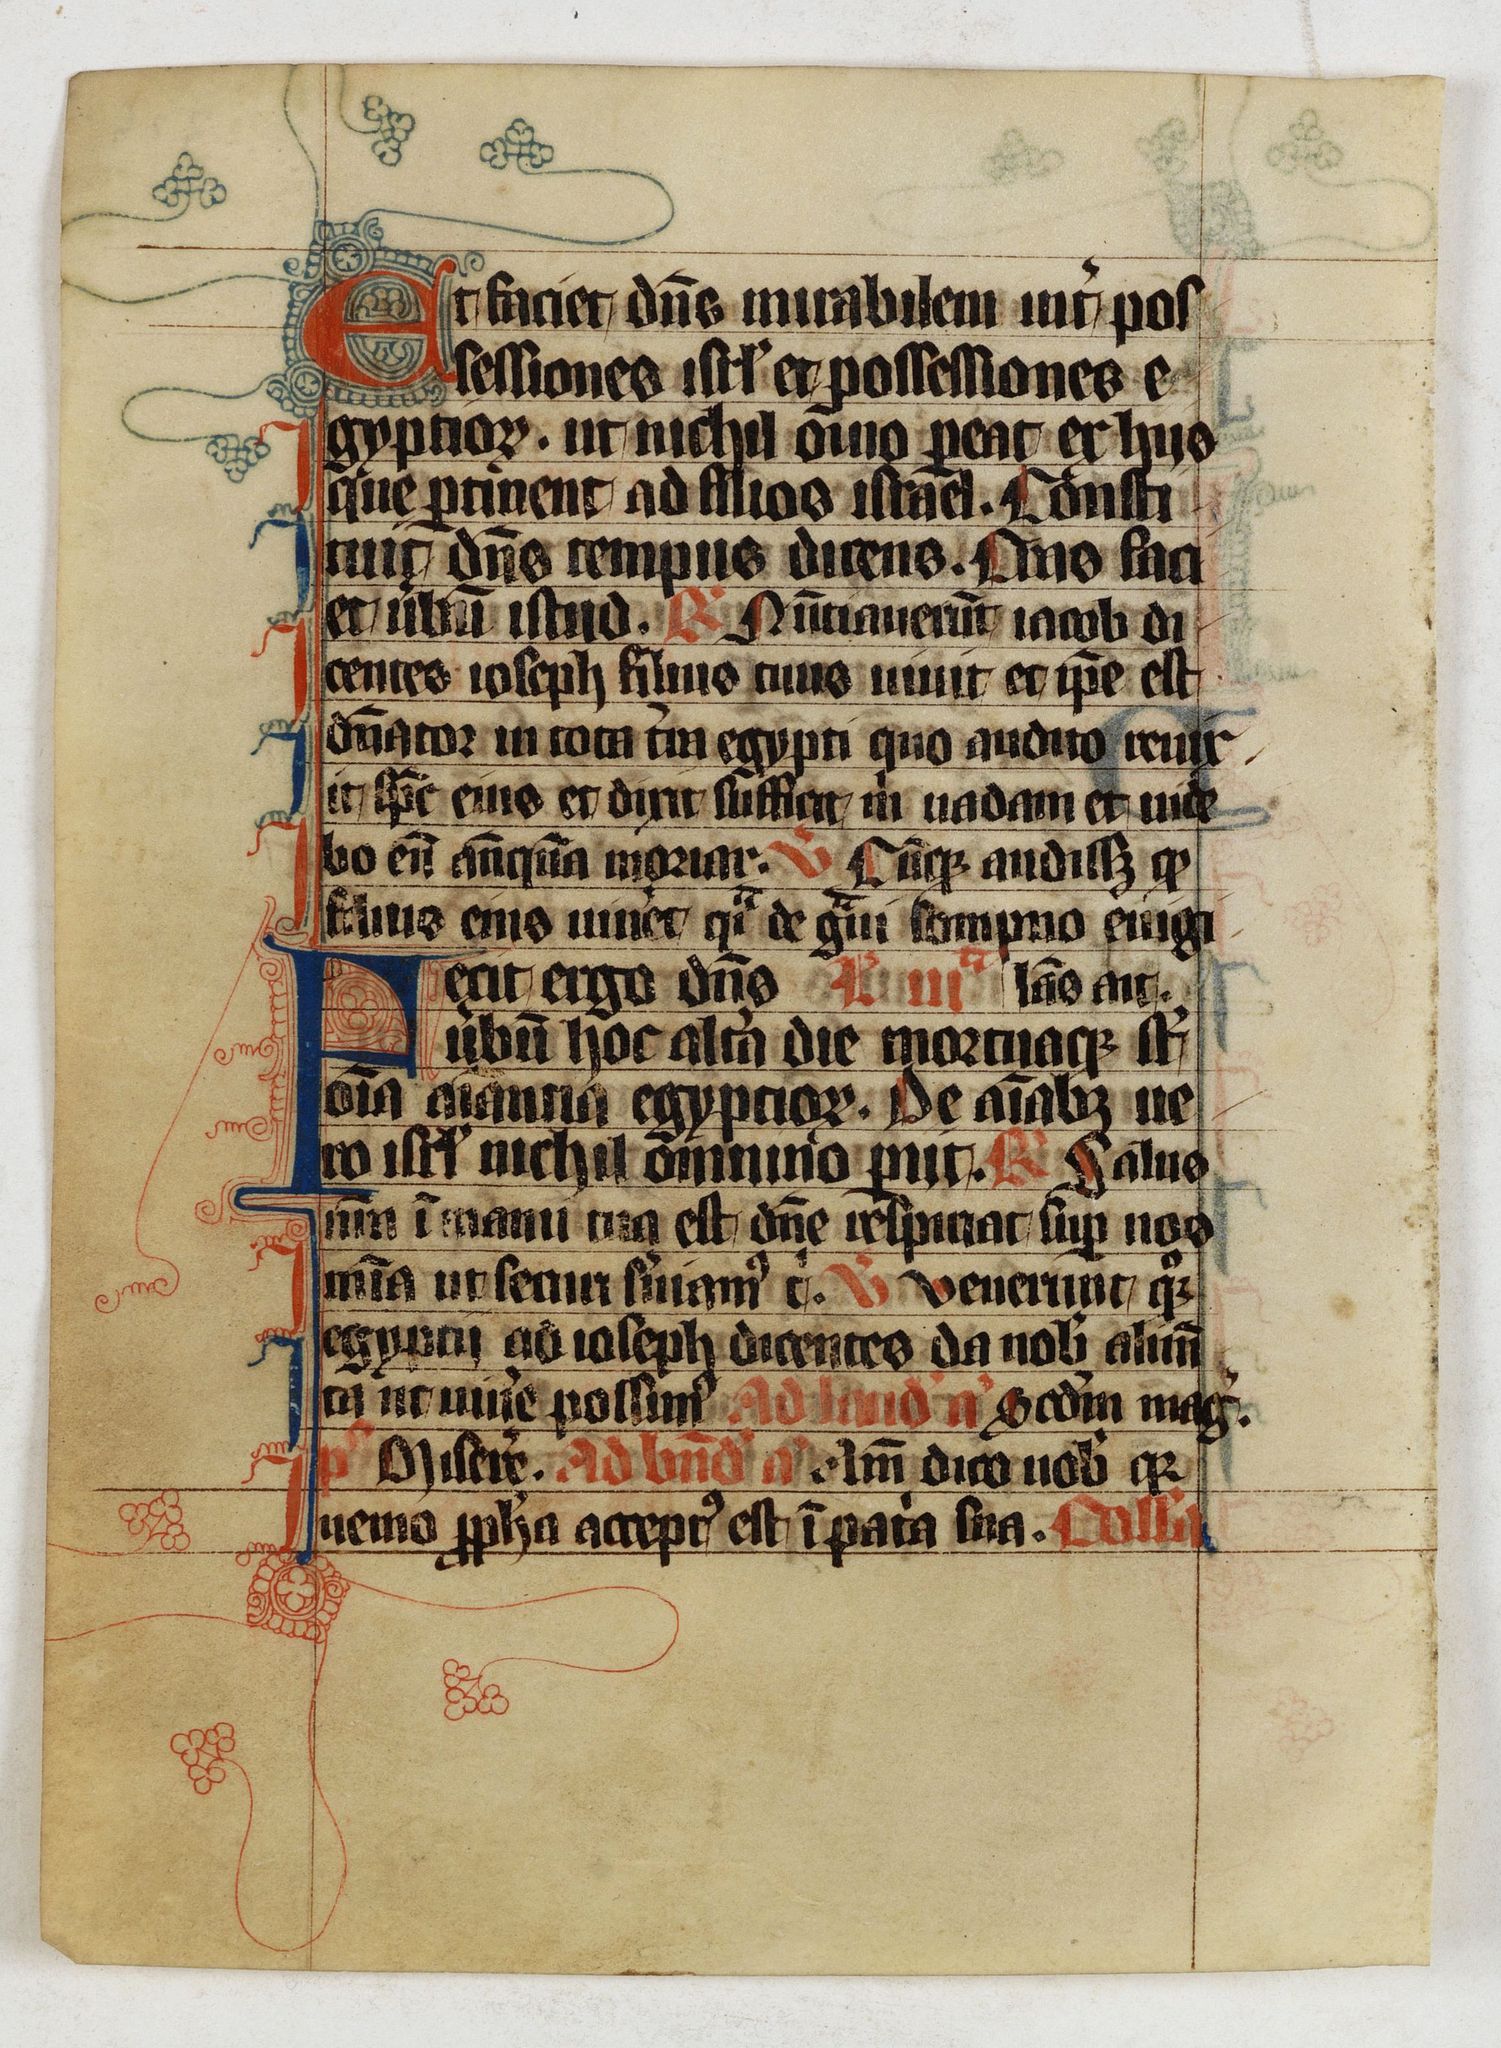 Et faciet dn̄s mirabilem int̉ pos
sessiones isrl̉ et possessiones e
gyptioꝝ. ut nichil om̄o ꝑeat ex hijs
que ꝑtinent ad filios israel. Consti
tuit dn̄s tempus dicens. Cras faci
et ủbū istud. ℟ Nūtiauerūt iacob di
centes ioseph filius tuus uiuit et ip̄e est
dn̄ator in tota t̉ra egypti quo audito reuix
it sp̄c eius et dixit sufficit m̉ uadam et uide
bo eū an̄q̄ꝫ moriar. ℣ Cūqꝫ audissꝫ qꝫ
filius eius uiủet qͣi de gͣui sompno euigi
Fecit ergo dn̄s ℟ iii lc̄ās ait.
ủbū hoc alt̉a die mortuaqꝫ st̉
om̄ia aīantia egyptioꝝ. De aīabꝫ ue
ro isrl̉ nichil om̄nino ꝑiit. ℟ Salus
nr̄a ī manu tua est dn̄e respiciat suꝑ nos
mīa ut securi ẜuiamꝰ t̉. ℣ Venerunt qꝫ
egyptij ad ioseph dicentes da nob̉ alim̄
ta ut uiủe possimꝰ Ad laud̉ a̓ Scd̄m mag̉.
p̄s Miserẻ. Ad bn̄d̉ a̓ Am̄ dico uob̉ qꝫ
nemo ꝓph̉a acceptꝰ est ī pat̉ia sua. Coll̄a